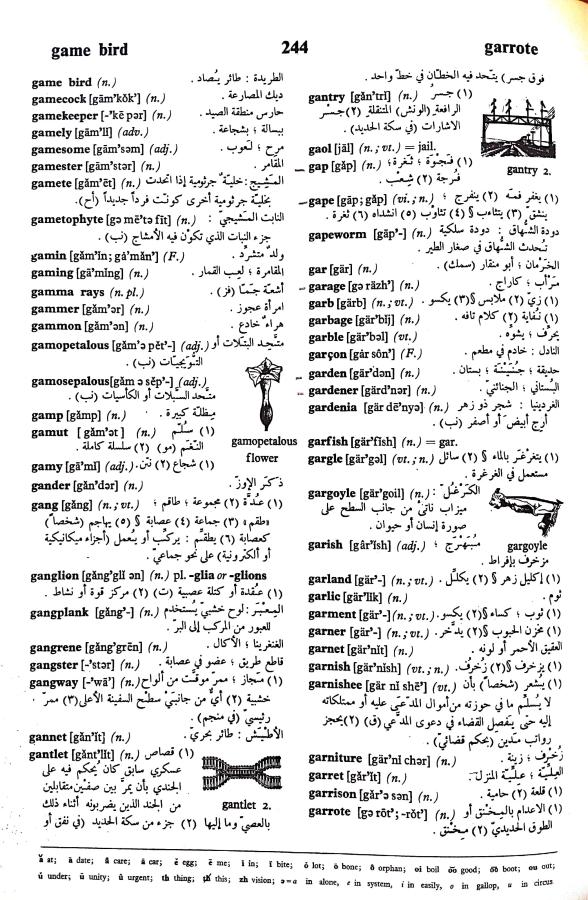 game bird
244
garrote
game bird (n.) الطريدة : طائر يُصاد .
gamecock [gām′kŏk′] (n.) ديك المصارعة .
gamekeeper [-′kē pər] (n.) حارس منطقة الصيد .
gamely [gām′lĭ] (adv.) ببسالة ؛ بشجاعة .
gamesome [gām′səm] (adj.) مرِح ؛ لَعوب .
gamester [gām′stər] (n.) المقامر .
gamete [găm′ēt] (n.) المَشيج : خليّة جرثومية إذا اتحدت
بخليّة جرثومية أخرى كونت فرداً جديداً (أح).
gametophyte [gə mē′tə fīt] (n.) النابت المَشيجيّ :
جزء النبات الذي تكوّن فيه الأمشاج (نب) .
gamin [găm′ĭn; gȧ′măn′] (F.) ولد متشرّد .
gaming [gā′mĭng] (n.) المقامرة ؛ لعب القمار .
gamma rays (n. pl.) أشعة جَمّا (فز) .
gammer [găm′ər] (n.) امرأة عجوز .
gammon [găm′ən] (n.) هراء خادع .
gamopetalous [găm′ə pĕt′-] (adj.) متّحد البتلات أو
التُّوَيجيّات (نب) .
gamosepalous [găm ə sĕp′-] (adj.)
متّحد السَّبلات أو الكأسيات (نب) .
gamp [gămp] (n.) مِظلّة كبيرة .
gamut [găm′ət] (n.) (١) سُلّم
النّغَم (مو) (٢) سلسلة كاملة .
gamy [gā′mĭ] (adj.) (١) شجاع (٢) نتن .
gamopetalous
flower
gander [găn′dər] (n.) ذكَر الإوز .
gang [găng] (n.; vt.) (١) عُدّة (٢) مجموعة ؛ طاقم ؛
«طقم» (٣) جماعة (٤) عصابة § (٥) يهاجم (شخصاً)
كعصابة (٦) يطقّم : يركّب أو يُعمل (أجزاء ميكانيكية
أو ألكترونية) على نحو جماعيّ .
ganglion [găng′glĭ ən] (n.) pl. -glia or -glions
(١) عُقدة أو كتلة عصبية (ت) (٢) مركز قوة أو نشاط .
gangplank [găng′-] (n.) المِعْبَر : لوح خشبيّ يُستخدم
للعبور من المركب إلى البرّ .
gangrene [găng′grēn] (n.) الغنغرينا ؛ الأُكال .
gangster [-′stər] (n.) قاطع طريق ؛ عضو في عصابة .
gangway [-′wā′] (n.) (١) مَجاز ؛ ممر موقّت من ألواح
خشبية (٢) أيّ من جانبيْ سطح السفينة الأعلى (٣) ممر
رئيسيّ (في منجم) .
gannet [găn′ĭt] (n.) الأطيَش : طائر بحريّ .
gantlet [gănt′lĭt] (n.) (١) قصاص
عسكري سابق كان يُحكم فيه على
الجندي بأن يمرّ بين صفّين متقابلين
من الجند الذين يضربونه أثناء ذلك
بالعصيّ وما إليها (٢) جزء من سكة الحديد (في نفق أو
gantlet 2.
فوق جسر) يتّحد فيه الخطّان في خطّ واحد .
gantry [găn′trĭ] (n.) (١) جسر
الرافعة (الونش) المتنقلة (٢) جسر
الاشارات (في سكة الحديد) .
gantry 2.
gaol [jāl] (n.; vt.) = jail.
gap [găp] (n.) (١) فَجْوة ؛ ثغرة ؛
فُرجة (٢) شِعْب .
gape [gāp; găp] (vi.; n.) (١) يفغر فمه (٢) ينفرج ؛
ينشق (٣) يتثاءب § (٤) تثاؤب (٥) انشداه (٦) ثغرة .
gapeworm [gāp′-] (n.) دودة الشّهاق : دودة سلكية
تُحدث الشُّهاق في صغار الطير .
gar [gär] (n.) الخَرْمان ؛ أبو منقار (سمك) .
garage [gə räzh′] (n.) مَرْأب ؛ كاراج .
garb [gärb] (n.; vt.) (١) زيّ (٢) ملابس § (٣) يكسو .
garbage [gär′bĭj] (n.) (١) نُفاية (٢) كلام تافه .
garble [gär′bəl] (vt.) يحرّف ؛ يشوّه .
garçon [gȧr sôn′] (F.) النادل : خادم في مطعم .
garden [gär′dən] (n.) حديقة ؛ جُنَيْنة ؛ بستان .
gardener [gärd′nər] (n.) البُستاني ؛ الجنائنيّ .
gardenia [gär dē′nyə] (n.) الغردينيا : شجر ذو زهر
أرِج أبيض أو أصفر (نب) .
garfish [gär′fĭsh] (n.) = gar.
gargle [gär′gəl] (vt.; n.) (١) يتغرغر بالماء § (٢) سائل
مستعمل في الغرغرة .
gargoyle [gär′goil] (n.) الكَرْغَل :
ميزاب ناتئ من جانب السطح على
صورة إنسان أو حيوان .
gargoyle
garish [gâr′ĭsh] (adj.) مُبَهْرَج ؛
مزخرف بإفراط .
garland [gär′-] (n.; vt.) (١) إكليل زهر § (٢) يكلّل .
garlic [gär′lĭk] (n.) ثوم .
garment [gär′-] (n.; vt.) (١) ثوب ؛ كساء § (٢) يكسو .
garner [gär′-] (n.; vt.) (١) مخزن الحبوب § (٢) يدّخر .
garnet [gär′nĭt] (n.) العقيق الأحمر أو لونه .
garnish [gär′nĭsh] (vt.; n.) (١) يزخرف § (٢) زُخرف .
garnishee [gär nĭ shē′] (vt.) (١) يشعِر (شخصاً) بأن
لا يُسلّم ما في حوزته من أموال المدّعى عليه أو ممتلكاته
إليه حتى يَفصل القضاء في دعوى المدعي (ق) (٢) يحجز
رواتب مَدين (بحكم قضائيّ) .
garniture [gär′nĭ chər] (n.) زُخرف ؛ زينة .
garret [găr′ĭt] (n.) العِلّيّة ؛ عِلّيّة المنزل .
garrison [găr′ə sən] (n.) (١) قلعة (٢) حامية .
garrote [gə rōt′; -rŏt′] (n.) (١) الاعدام بالمِخْنق أو
الطوق الحديديّ (٢) مِخْنق .
ă at; ā date; â care; ä car; ĕ egg; ē me; ĭ in; ī bite; ŏ lot; ō bone; ô orphan; oi boil ŏŏ good; ōō boot; ou out;
ŭ under; ū unity; û urgent; th thing; th this; zh vision; ə=a in alone, e in system, i in easily, o in gallop, u in circus